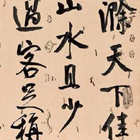 滁天下佳
山水且少
過客足稱